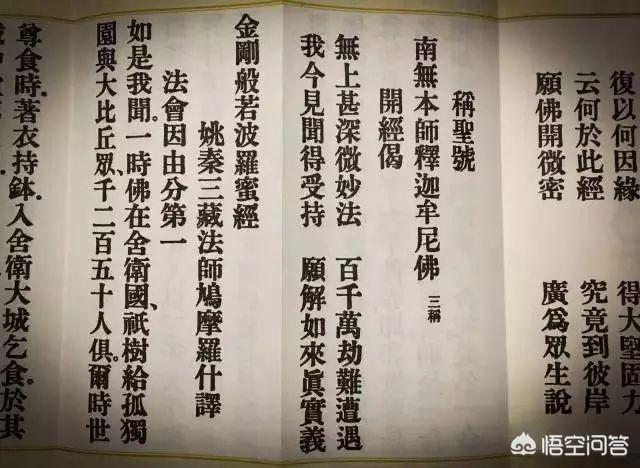 復以何因緣　得大堅固力
云何於此經　究竟到彼岸
願佛開微密　廣爲眾生說
稱聖號
南無本師釋迦牟尼佛 三稱
開經偈
無上甚深微妙法　百千萬劫難遭遇
我今見聞得受持　願解如來眞實義
金剛般若波羅蜜經
姚秦三藏法師鳩摩羅什譯
法會因由分第一
如是我聞。一時佛在舍衛國、祇樹給孤獨
園與大比丘眾、千二百五十人俱。爾時世
尊食時。著衣持鉢。入舍衛大城乞食。於其
悟空问答